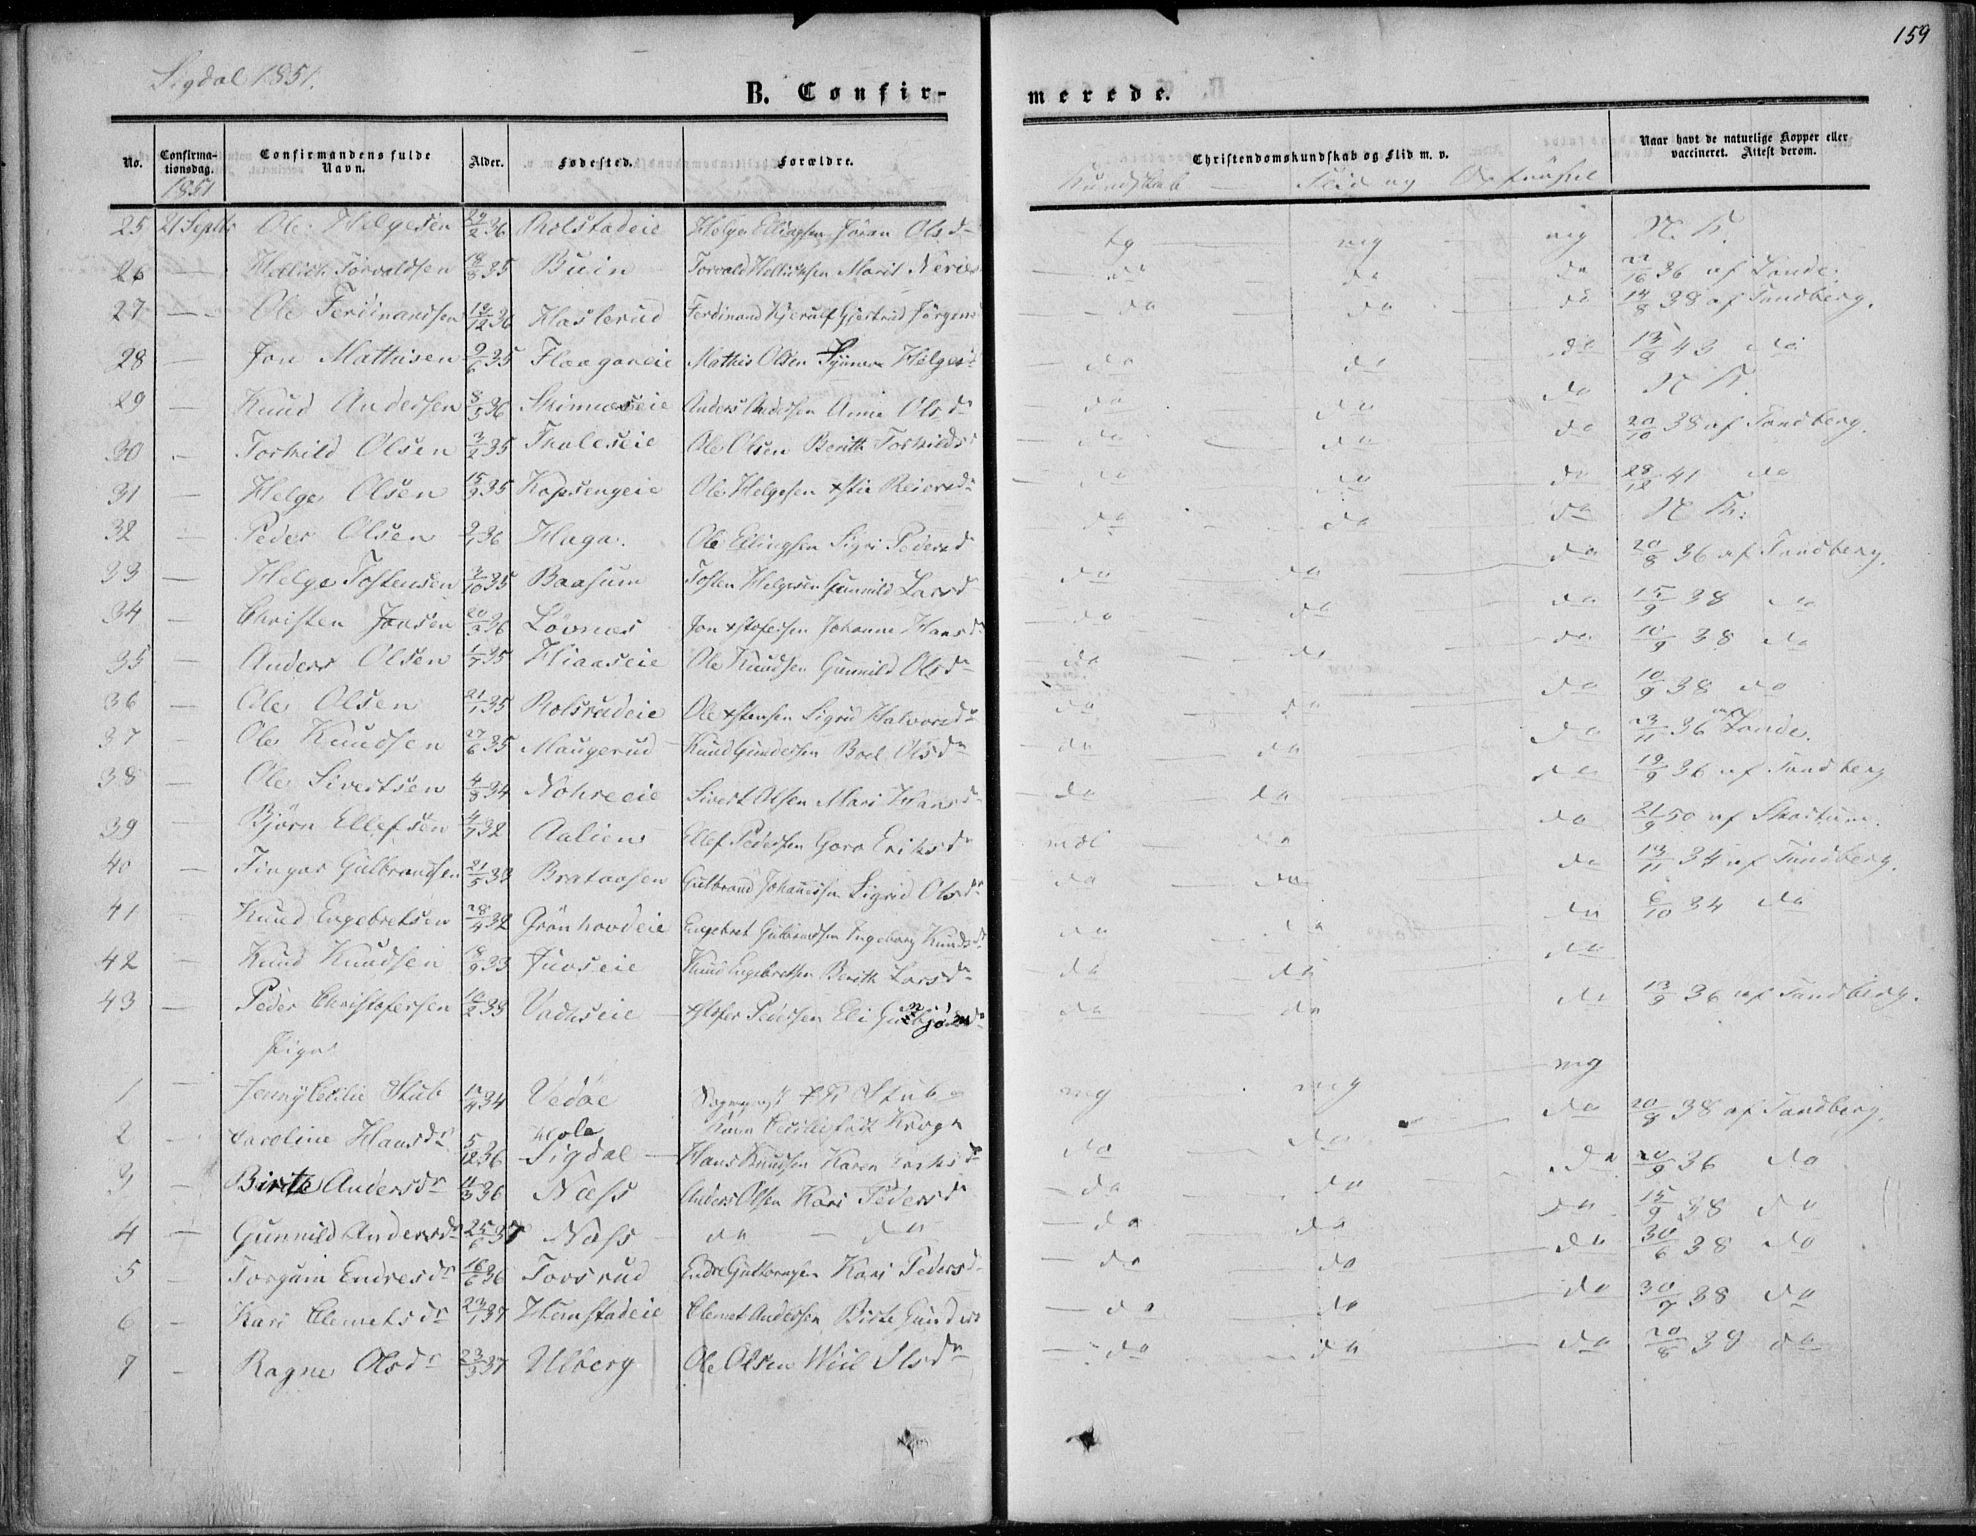 159
Sigdal 1851.
B. Confir- merede.
No. Confirma-tionsdag. Confirmandens fulde Navn. Alder. Fødested. Forældre. Christendomskundskab og Flid m. v. Naar havt de naturlige Kopper eller vaccineret. Attest derom.
1851 Kundskab Flid og Opførsel
25 21 Septbr Ole Helgesen 29/2 36 Rolstadeie Helge Ellingsen Jøran Olsdr tg mg mg N. K.
26 — Hellich Torvaldsen 18/8 35 Buin Torvald Hellichsen Marit do do do 22/16 36 af Lande.
27 — Ole Ferdinandsen 19/12 36 Haslerud Ferdinand Kjerulf Gjertrud Jørgens do do do 14/8 38 af Sandberg.
28 — Jon Mathisen 9/6 35 Flaaganeie Mathis Olsen Synnev Helgesd do do do 13/8 43 do
29 — Knud Andersen 8/5 36 Skinneseie Anders Andersen Anne Olsdr do do do N K.
30 — Torkild Olsen 3/2 35 Thuleseie Ole Olsen Berith Torkildsd do do do 20/10 38 af Sandberg.
31 — Helge Olsen 15/9 35 Kopsengeie Ole Helgesen Xstie Reiersdr do do do 28/12 41 do
32 — Peder Olsen 9/1 36 Haga. Ole Ellingsen Sigri Pedersd do do do N K.
33 — Helge Tostensen 3/10 35 Baasum Tosten Helgesen Gunnild Larsd do do do 20/8 36 af Sandberg.
34 — Christen Jonsen 20/3 36 Løvnæs Jon Xstofersen Johanne Hansdr do do do 15/9 38 do
35 — Anders Olsen 1/7 35 Hiaaseie Ole Knudsen Gunnild Olsdr do do do 10/9 38 do
36 — Ole Olsen 21/1 35 Rolsrudeie Ole Xstensen Sigrid Halvorsdr do do do 10/9 38 do
37 — Ole Knudsen 27/6 35 Maugerud Knud Gundersen Boel Olsdr do do do 23/11 36 af Lande.
38 — Ole Sivertsen 4/8 34 Nohreeie Sivert Olsen Mari Hansdr do do do 19/9 36 af Sandberg
39 Bjørn Ellefsen 4/7 32 Aaliens Ellef Pedersen Goro Eriksdr mdl do do 21/9 50 af Skartum.
40 — Fingar Gulbrandsen 21/5 33 Brataasen Gulbrand Johannesen Sigrid Olsdr do do do 13/11 34 af Sandberg.
41 Knud Engebretsen 28/4 32 Grønhovdeie Engebret Gulbrandsen Ingeborg Knudsdr do do do 6/10 34 do
42 — Knud Knudsen 18/9 33 Juvseie Knud Engebretsen Berith Larsdr do do do
43 — Peder Christofersen 10/2 33 Vadseie Xstofer Pedersen Eli Gudbjørnsdr do do do 13/9 36 af Sandberg.
Piger
1 — Jenny Cecilie Stub 12/4 34 Vedøe Stub Cecilie født Krogh mg mg mg
2 — Caroline Hansdr 5/12 36 Hole Sigdal Hans Knudsen Karen do do do 20/8 38 af Sandberg.
3 — Birte Andersdr 11/3 36 Næss Anders Olsen Kari Pedersdr do do do 20/9 36 do
4 — Gunnild Andersdr 25/6 37 Næss do — do do do do 15/9 38 do
5 — Torguin Endresdr 16/6 36 Tovsrud Endre Guttormsen Kari Pedersdr do do do 30/6 38 do
6 — Kari Clemetsdr 23/1 37 Hemstadeie Clemet Andersen Birte Gunders do do do 30/7 38 do
7 — Ragne Olsdr 23/3 37 Ulberg Ole Olsen Wiil Ilsdr do do do 20/8 39 do